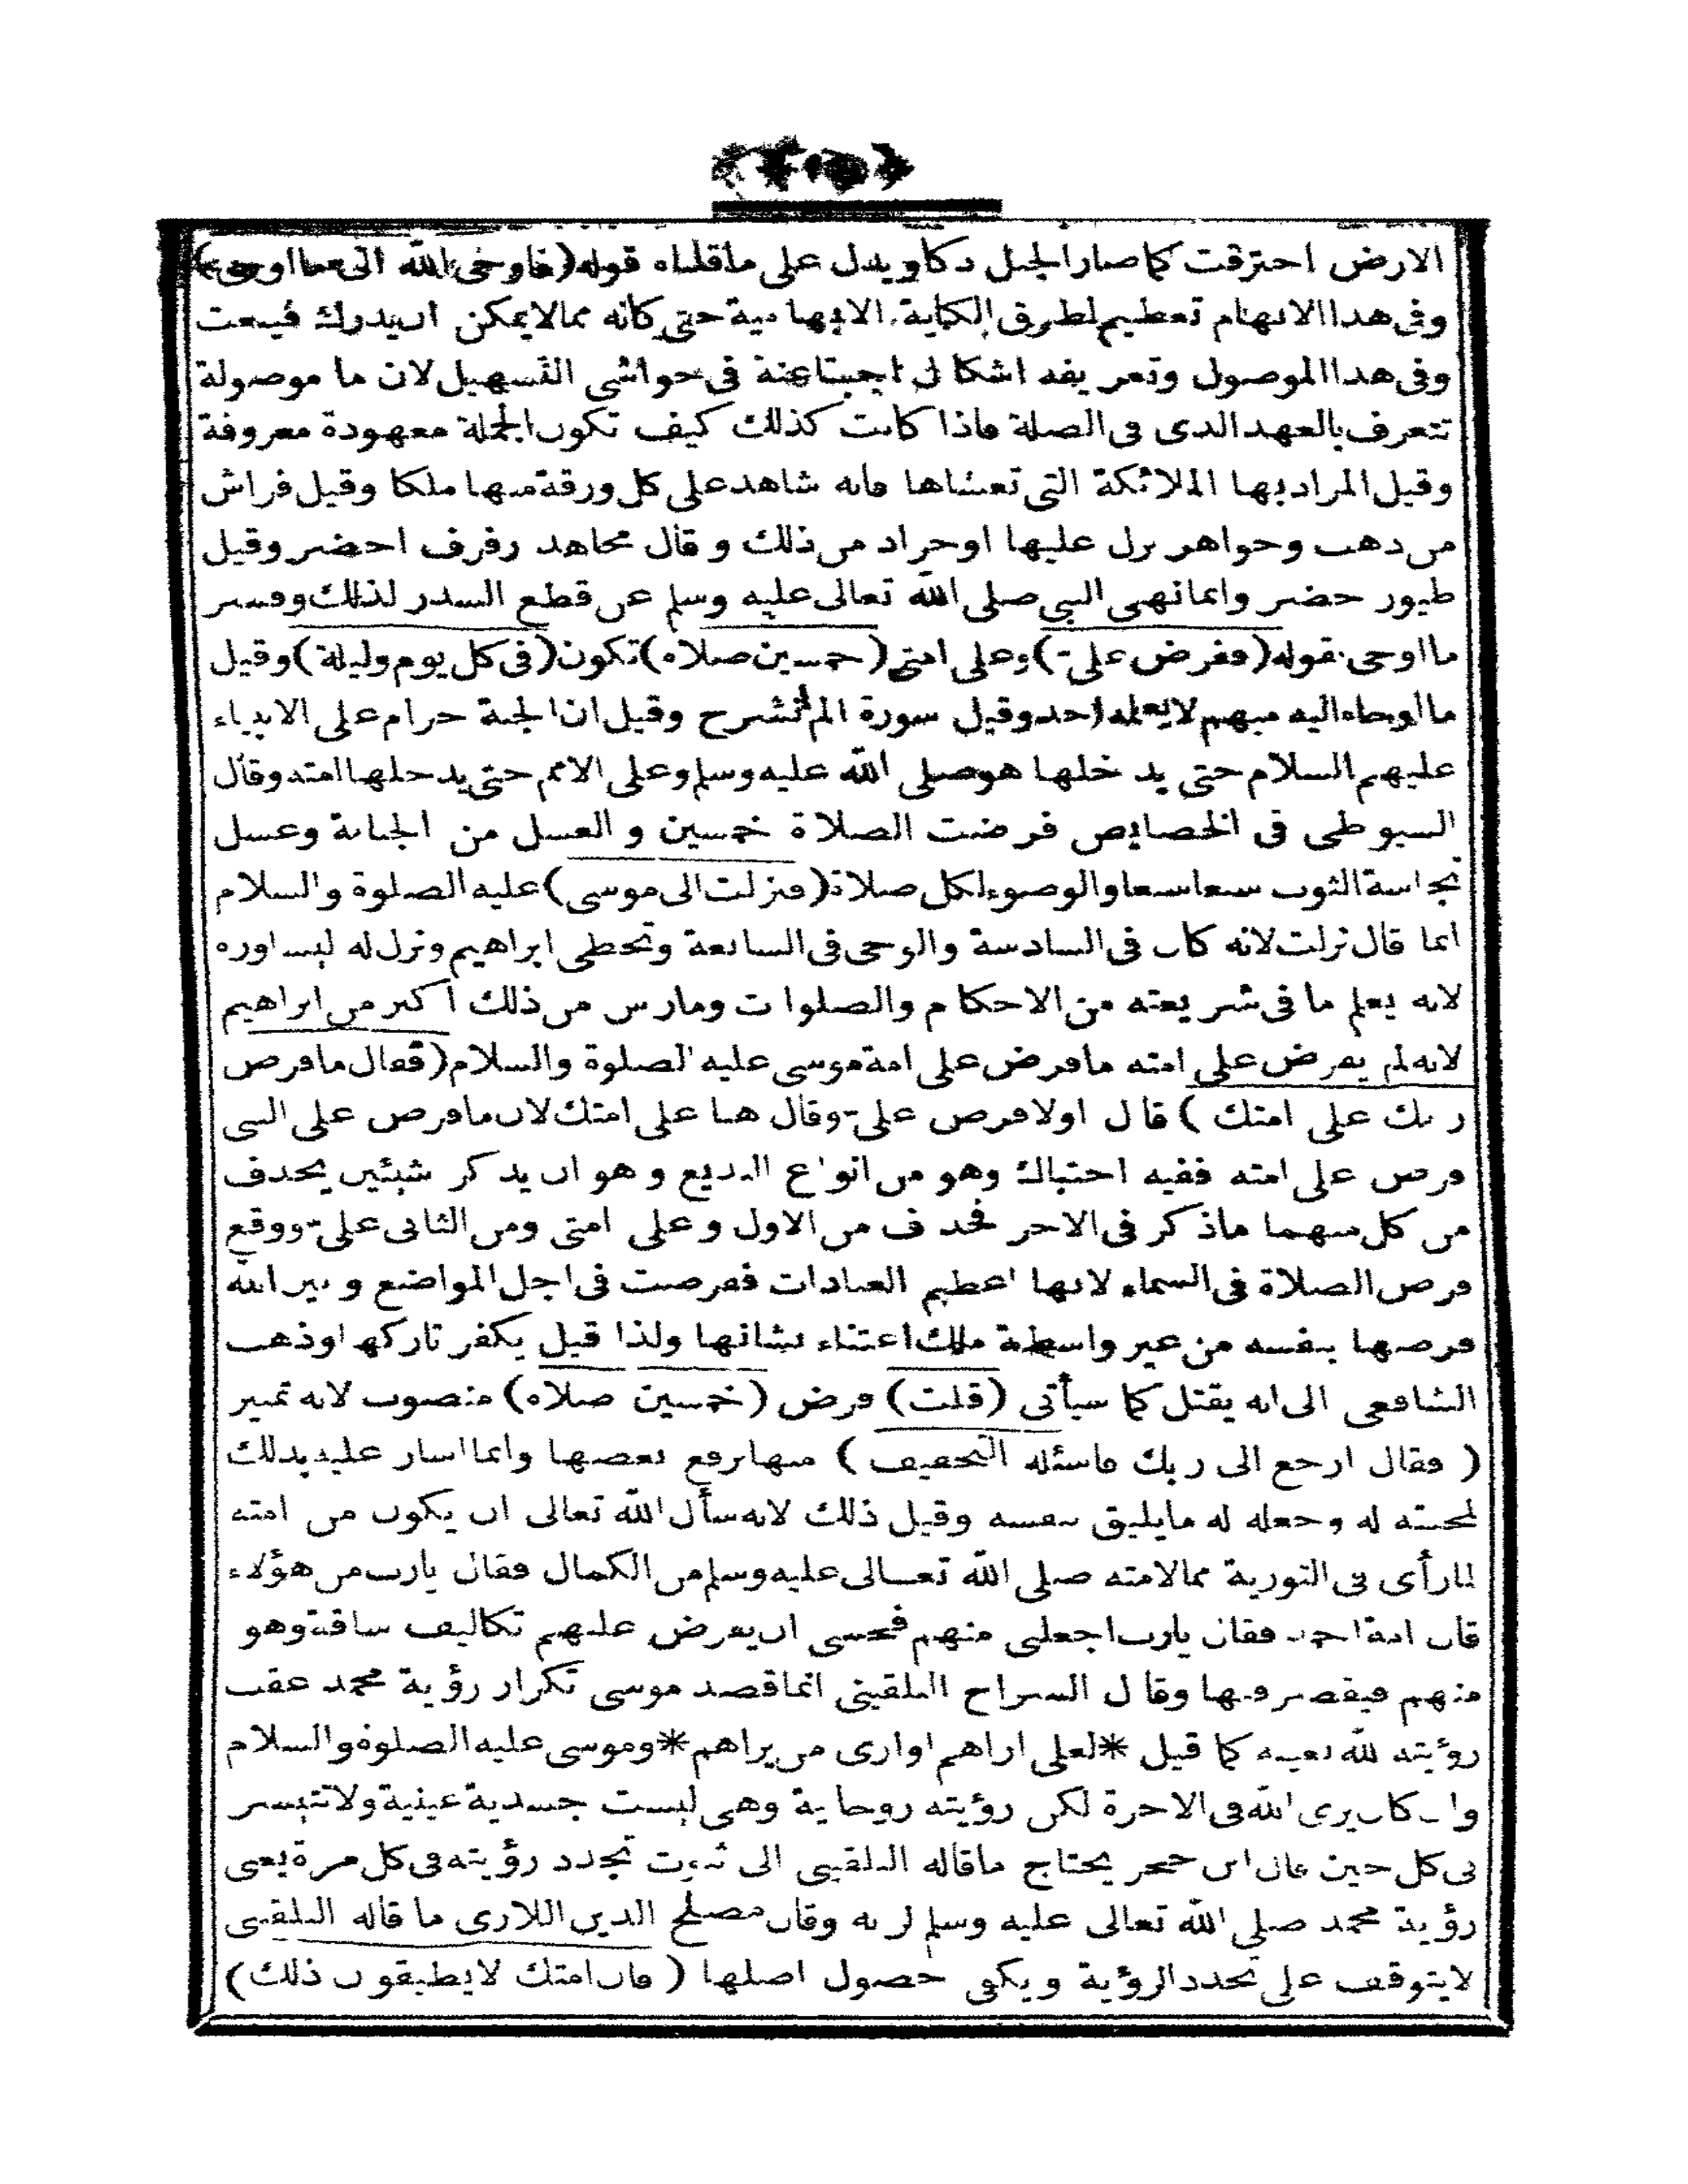 الارض احترقت كما صار الجبل دكا ويدل على ما قلناه قوله (فاوحى الله الى ما اوحى)
وفى هذا الابهام تعظيم لطرق الكناية الابهامية حتى كانه مما لا يمكن ان يدرك فينعت
وفى هذا الموصول وتعريفه اشكال اجبنا عنه فى حواشى التسهيل لان ما موصولة
تتعرف بالعهد الذى فى الصلة فاذا كانت كذلك كيف تكون الجملة معهودة معروفة
وقيل المراد بها الملائكة التى تغشاها فانه شاهد على كل ورقة منها ملكا وقيل فراش
من ذهب وجواهر نزل عليها او جراد من ذلك وقال مجاهد رفرف اخضر وقيل
طيور خضر وانما نهى النبى صلى الله تعالى عليه وسلم عن قطع السدر لذلك وفسر
ما اوحى بقوله (ففرض على) وعلى امتى (خمسين صلاه) تكون (فى كل يوم وليلة) وقيل
ما اوحاه اليه مبهم لا يعلمه احد وقيل سورة الم نشرح وقيل ان الجنة حرام على الانبياء
عليهم السلام حتى يدخلها هو صلى الله عليه وسلم وعلى الامم حتى يدخلها امته وقال
السيوطى فى الخصايص فرضت الصلاة خمسين و الغسل من الجنابة وغسل
نجاسة الثوب سبعا سبعا والوضوء لكل صلاة (فنزلت الى موسى) عليه الصلوة والسلام
انما قال نزلت لانه كان فى السادسة والوحى فى السابعة وتخطى ابراهيم ونزل له ليساوره
لانه يعلم ما فى شريعته من الاحكام والصلوات ومارس من ذلك اكثر من ابراهيم
لانه لم يفرض على امته ما فرض على امة موسى عليه الصلوة والسلام (فقال ما فرض
ربك على امتك) قال اولا فرض على وقال هنا على امتك لان ما فرض على النبى
فرض على امته ففيه احتباك وهو من انواع البديع وهو ان يذكر شيئين يحذف
من كل منهما ما ذكر فى الاخر فحذف من الاول وعلى امتى ومن الثانى على ووقع
فرض الصلاة فى السماء لانها اعظم العبادات ففرضت فى اجل المواضع وبين الله
فرضها بنفسه من غير واسطة ملك اعتناء بشانها ولذا قيل يكفر تاركها وذهب
الشافعى الى انه يقتل كما سيأتى (قلت) فرض (خمسين صلاه) منصوب لانه تمييز
(فقال ارجع الى ربك فاسئله التخفيف) منها برفع بعضها وانما اشار عليه بذلك
لمحبته له وجعله له ما يليق بنفسه وقيل ذلك لانه سأل الله تعالى ان يكون من امته
لما رأى فى التورية مما لامته صلى الله تعالى عليه وسلم من الكمال فقال يا رب من هؤلاء
قال امة احمد فقال يا رب اجعلنى منهم فخشى ان يفرض عليهم تكاليف شاقة وهو
منهم فيقصر فيها وقال السراج البلقينى انما قصد موسى تكرار رؤية محمد عقب
رؤيته لله بعينه كما قيل * لعلى اراهم او ارى من يراهم * وموسى عليه الصلوة والسلام
وان كان يرى الله فى الاخرة لكن رؤيته روحانية وهى ليست جسدية عينية ولا تتيسر
فى كل حين قال ابن حجر يحتاج ما قاله البلقينى الى ثبوت تجدد رؤيته فى كل مرة يعنى
رؤية محمد صلى الله تعالى عليه وسلم لربه وقال مصلح الدين اللارى ما قاله البلقينى
لا يتوقف على تجدد الرؤية ويكفى حصول اصلها (فان امتك لا يطيقون ذلك)